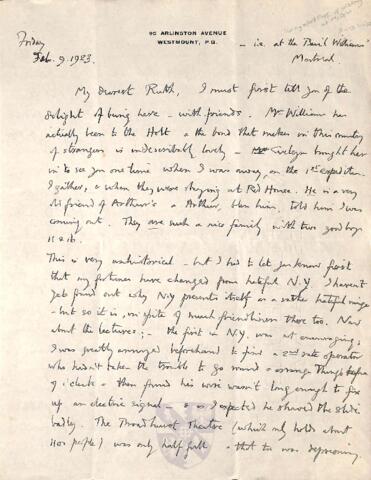 90 ARLINGTON AVENUE
WESTMOUNT, P.Q.
Friday
Feb. 9. 1923.
– i.e. at the Basil Williams'
Montreal.
My dearest Ruth, I must first tell you of the
delight of being here – with friends. Mrs Williams has
actually been to the Holt & the bond that makes in this country
of strangers is indescribably lovely – brought her
in to see you one time when I was away, on the 1st expedition
I gather, & when they were staying at Red House. He is a very
old friend of Arthur's & Arthur, bless him, told him I was
coming out. They are such a nice family with two good boys
11 & 16.
This is very unhistorical – but I had to let you know first
that my fortunes have changed from hateful N.Y. I haven't
yet found out why N.Y presents itself as a rather hateful
– but so it is, in spite of much friendliness there too. Now
about the lectures; – the first in N.Y. was not encouraging;
I was greatly annoyed beforehand to find a 2nd rate operator
who hadn't taken the trouble to go round & arrange things before
o'clock & then found his wire wasn't long enough to fix
up an electric signal – & as I expected he showed the slides
badly. The Broadhurst Theatre (which only holds about
1100 people) was only half full & that too was depressing.